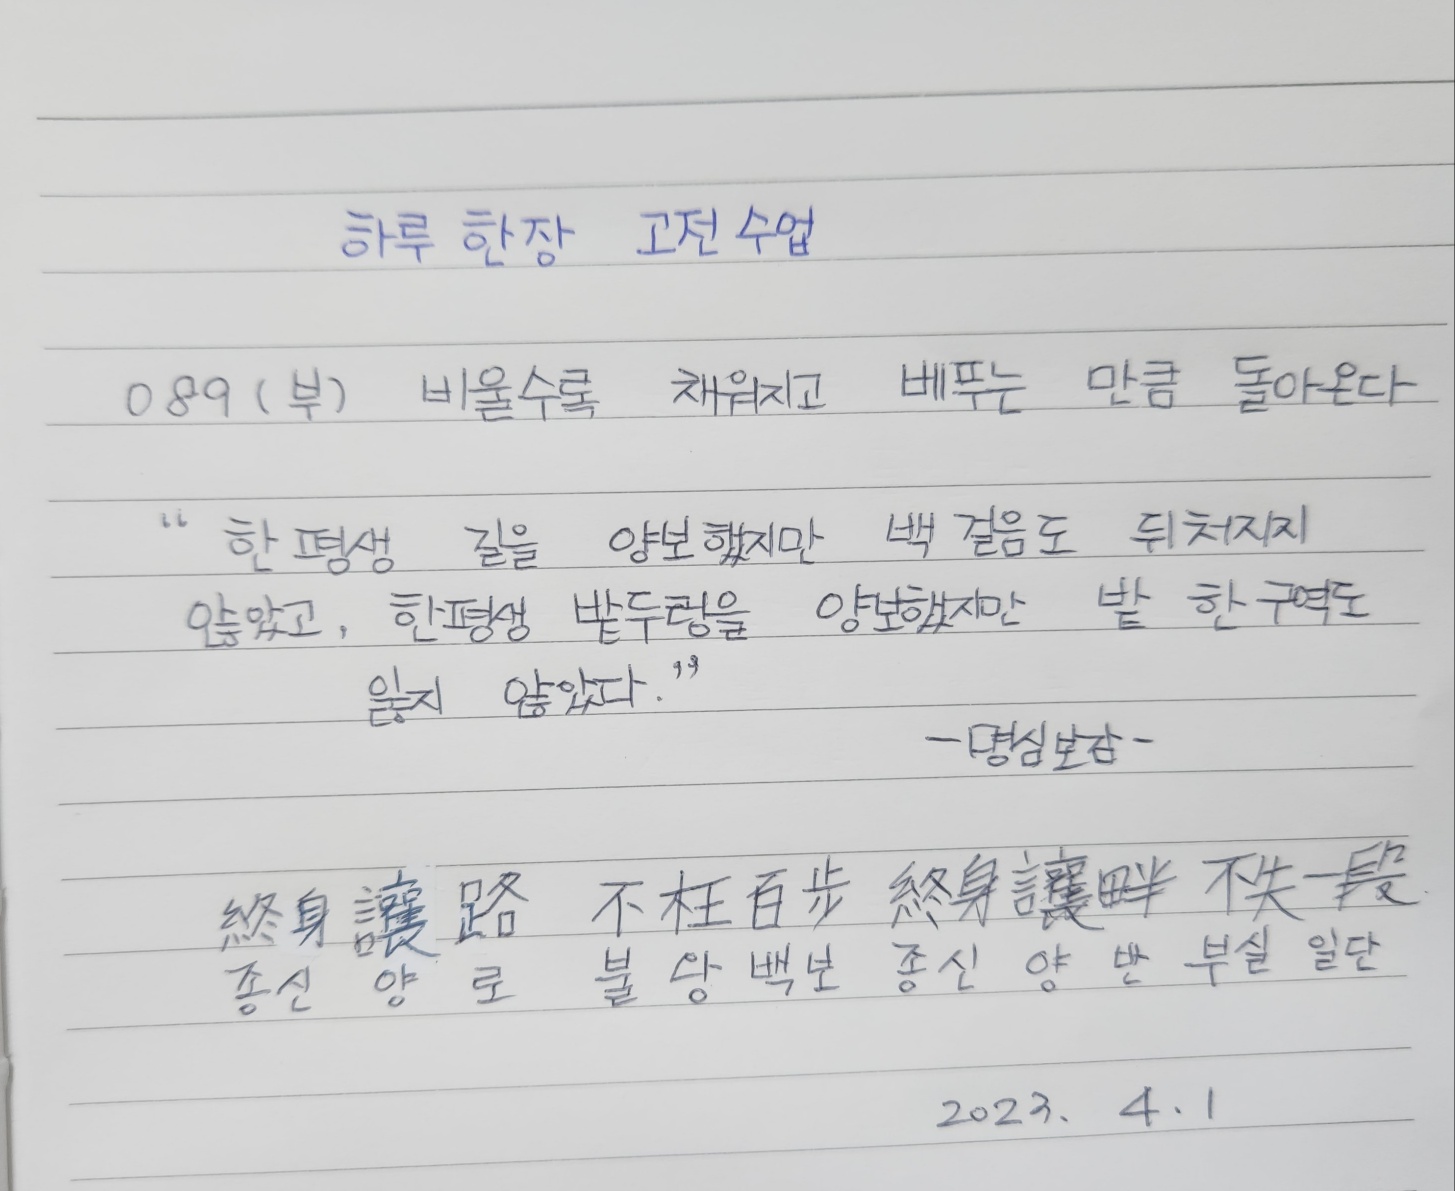 하루 한장 고전수업
089(부) 비울수록 채워지고 베푸는 만큼 돌아온다
“한평생 길을 양보했지만 백걸음도 뒤처지지
않았고, 한평생 밭두렁을 양보했지만 밭 한구역도
잃지 않았다.”
-명심보감-
終身讓路 不枉百步 終身讓畔 不失一段
종신 양 로 불 왕 백보 종신 양 반 부실 일단
2023. 4.1